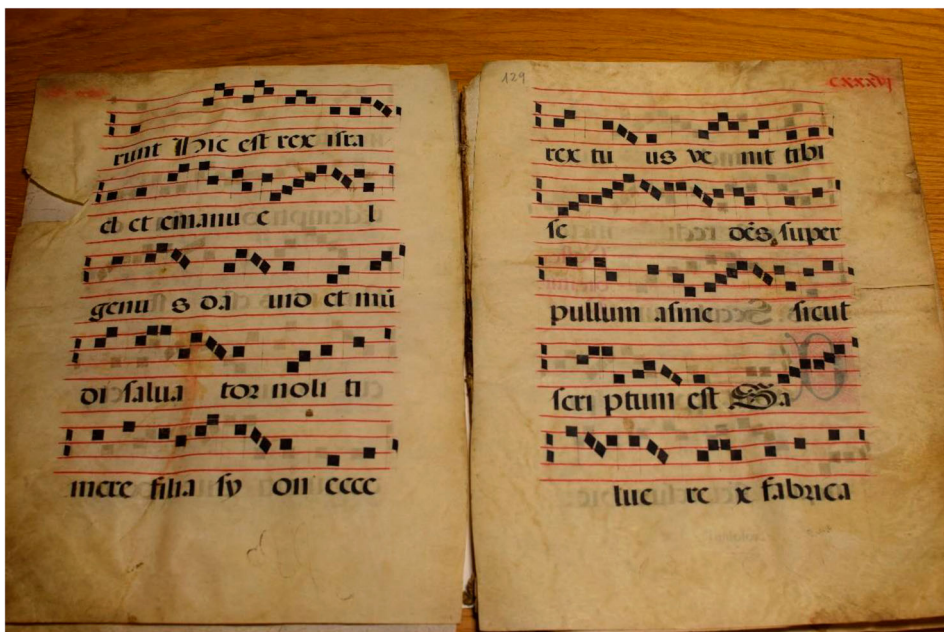 runt Hic est rex isra
el et emanu e l
genu s da uid et mū
di salua tor noli ti
mere filia sy on ecce
129
cxxxvj
rex tu us ve nit tibi
se dēs super
pullum asine sicut
scri ptum est Sa
lue re x fabrica